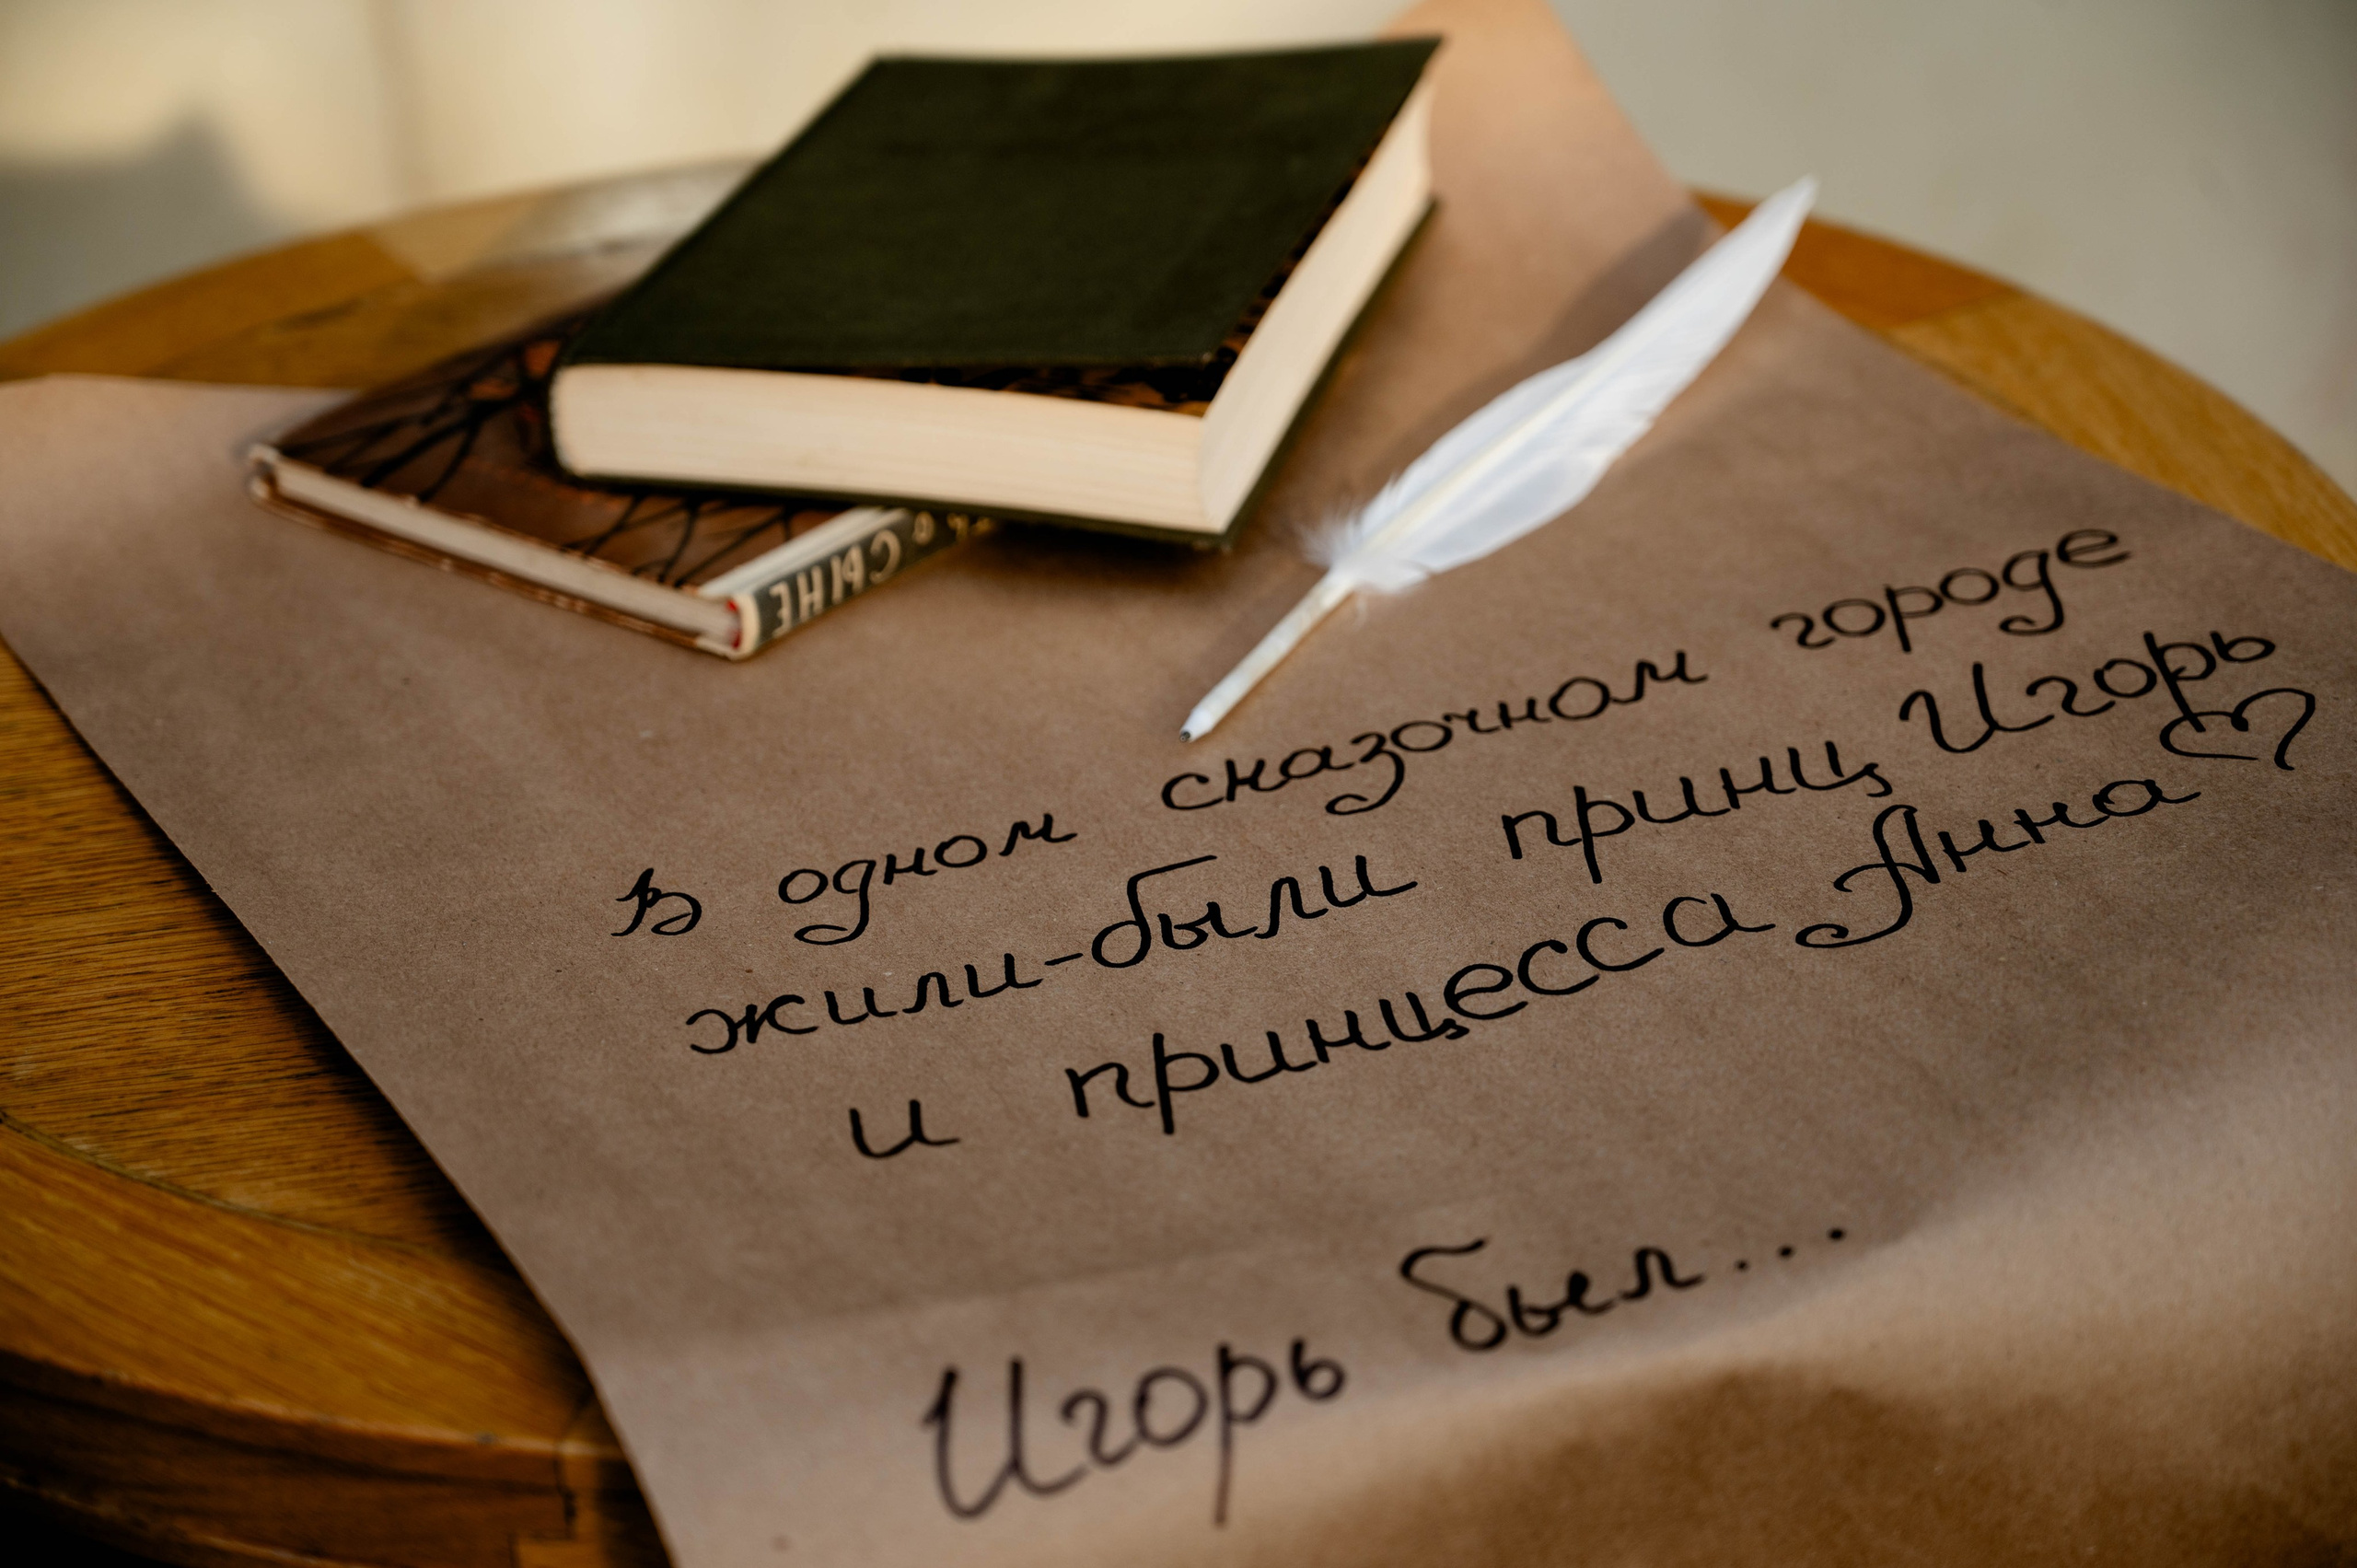 СЫНЕ
В одном сказочном городе
жили-были принц Игорь
и принцесса Анна
Игорь был...